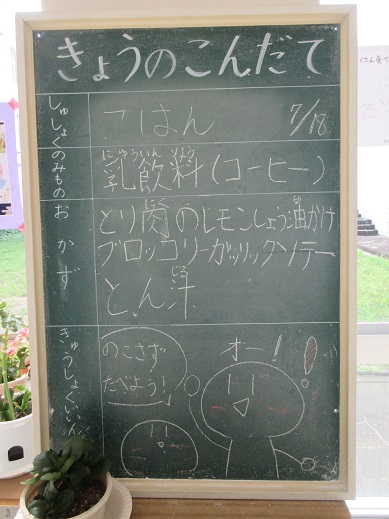 きょうのこんだて
しゅしょく
ごはん
7/18
のみもの
にゅういん りょう
乳飲料(コーヒー)
おかず
とり肉のレモンしょう油かけ
ブロッコリーガーリックソテー
じる
とん汁
きゅうしょくいいん
のこさず
たべよう!
オー!